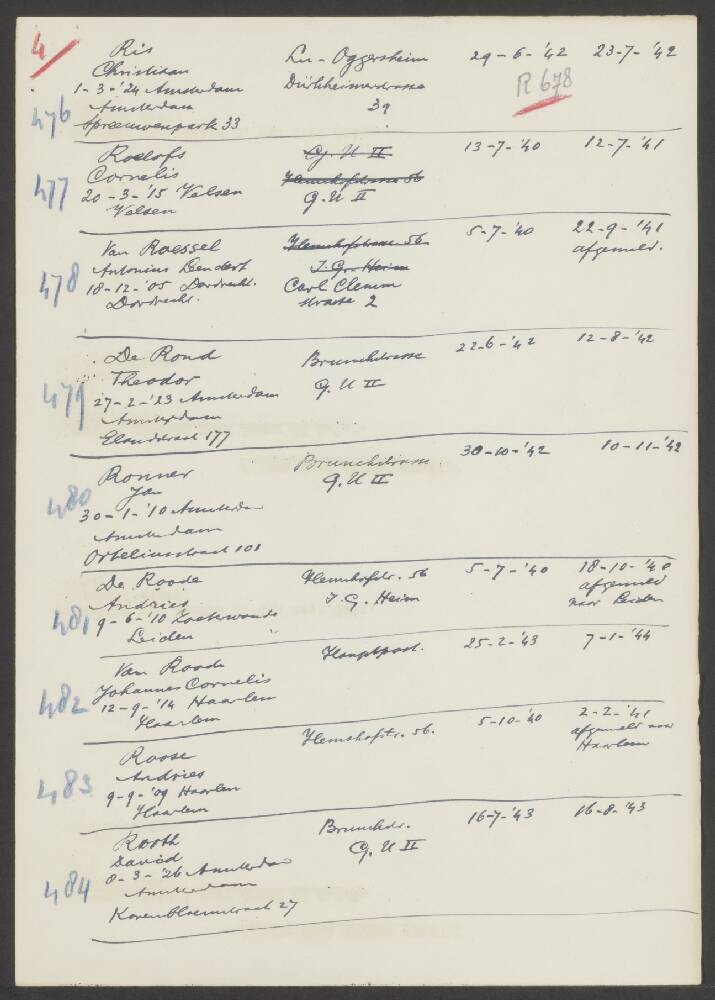 4
Ris Lu - Oggersheim 29-6-'42 23-7-'42
Christiaan Dürkheimerstrasse R 678
1-3-'24 Amsterdam 39
Amsterdam
476 Spreeuwenpark 33
Roelofs G. U II 13-7-'40 12-7-'41
Cornelis Hemshofstrasse 56
477 20-3-'15 Velsen G. U II
Velsen
Van Roessel Hemshofstrasse 56 5-7-'40 22-9-'41
Antonius Leendert I. G. Heim afgemeld.
478 18-12-'05 Dordrecht. Carl Clemm
Dordrecht. strasse 2
De Rond Brunckstrasse 22-6-'42 12-8-'42
Theodor G. U II
479 27-2-'23 Amsterdam
Amsterdam
Elandstraat 177
Ronner Brunckstrasse 30-10-'42 10-11-'42
Jan G. U II
480 30-1-'10 Amsterdam
Amsterdam
Orteliusstraat 101
De Roode Hemshofstr. 56 5-7-'40 18-10-'40
Andries I. G. Heim afgemeld
481 9-6-'10 Zoeterwoude naar Leiden
Leiden
Van Roode Hauptpost. 25-2-'43 7-1-'44
Johannes Cornelis
482 12-9-'14 Haarlem
Haarlem
Roose Hemshofstr. 56. 5-10-'40 2-2-'41
Andries afgemeld naar
483 9-9-'09 Haarlem Haarlem
Haarlem
Rooth Brunckstr. 16-7-'43 16-8-'43
David G. U II
484 8-3-'26 Amsterdam
Amsterdam
Korenbloemstraat 27